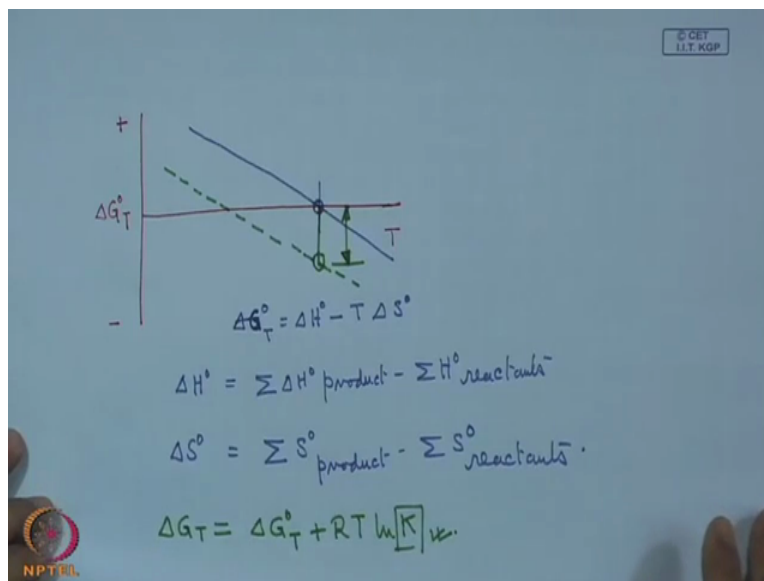 © CET
I.I.T. KGP
+
ΔG°T
T
-
ΔG°T = ΔH° - T ΔS°
ΔH° = Σ ΔH° product - Σ H° reactants
ΔS° = Σ S° product - Σ S° reactants.
ΔGT = ΔG°T + RT ln K
NPTEL